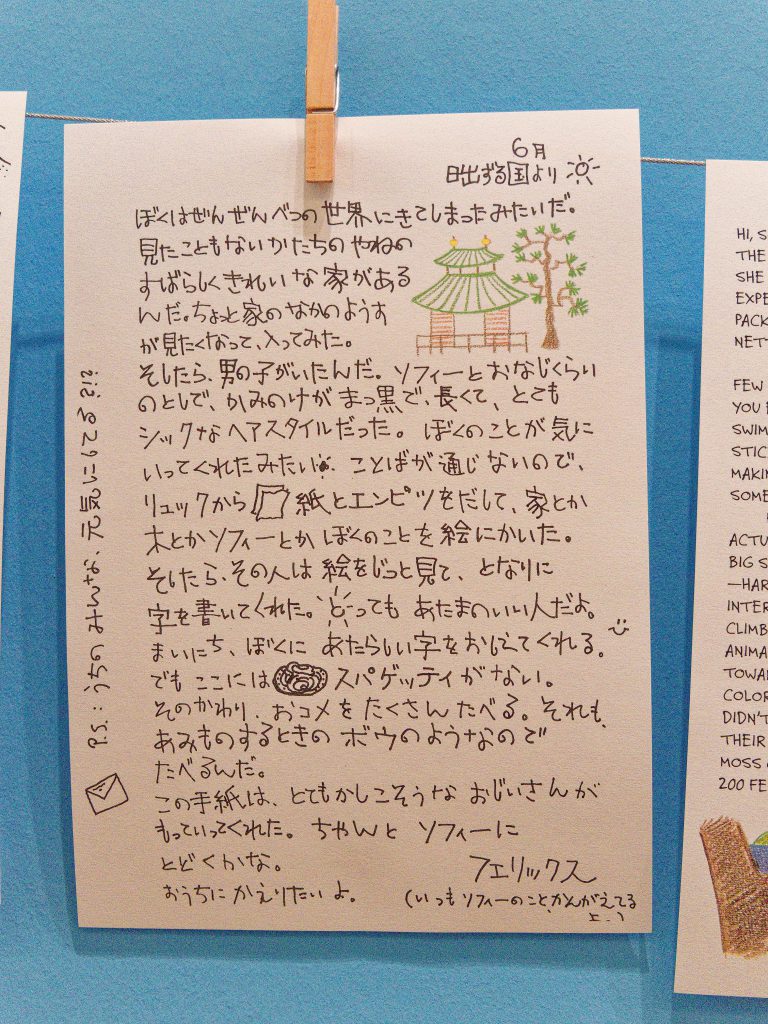 6月
日出ずる国より
ぼくはぜんぜんべつの世界にきてしまったみたいだ。
見たこともないかたちのやねの
すばらしくきれいな家がある
んだ。ちょっと家のなかのようす
が見たくなって、入ってみた。
そしたら、男の子がいたんだ。ソフィーとおなじくらい
のとしで、かみのけがまっ黒で、長くて、とても
シックなヘアスタイルだった。ぼくのことが気に
いってくれたみたい。ことばが通じないので、
リュックから紙とエンピツをだして、家とか
木とかソフィーとかぼくのことを絵にかいた。
そしたら、その人は絵をじっと見て、となりに
字を書いてくれた。とってもあたまのいい人だよ。
まいにち、ぼくにあたらしい字をおしえてくれる。
でもここにはスパゲッティがない。
そのかわり、おコメをたくさんたべる。それも、
あみものするときのボウのようなので
たべるんだ。
この手紙は、とてもかしこそうなおじいさんが
もっていってくれた。ちゃんとソフィーに
とどくかな。
おうちにかえりたいよ。
フェリックス
(いつもソフィーのこと、かんがえてる
よ..)
P.S.:うちのみんな、元気にしてる?!?
HI, S
THE
SHE
EXPE
PACK
NET
FEW
YOU
SWIM
STIC
MAKIN
SOME
ACTU
BIG S
—HAR
INTER
CLIMB
ANIMA
TOWA
COLOR
DIDN'T
THEIR
MOSS
200 FE